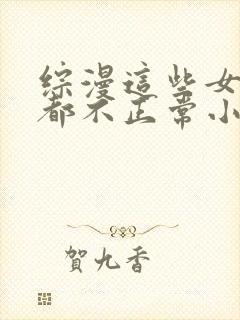 综漫這些女
都不正常小
賀九香